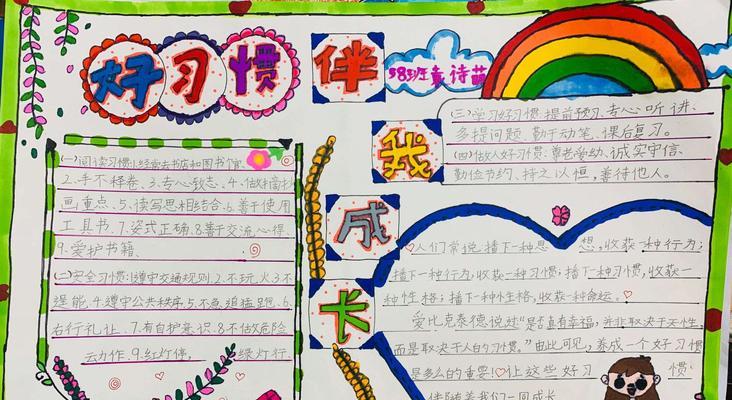 好习惯伴我成长
58班袁诗萌
(一)阅读习惯:1.经常去书店和图书馆、
2.手不释卷、3.专心致志、4.做摘抄
画重点、5.读写思相结合、6.善于使用
工具书、7.姿式正确、8.善于交流心得、
9.爱护书籍、
(二)安全习惯:1.遵守交通规则、2.不玩火、3.不
逞能、4.遵守公共秩序、5.不急追猛跑、6.
右行礼让、7.有自护意识、8.不做危险
云力作、9.红灯停, 绿灯行.
(三)学习好习惯:提前预习、专心听讲、
多提问题、勤于动笔、课后复习。
(四)做人好习惯:尊老爱幼、诚实守信、
勤俭节约、持之以恒,善待他人。
人们常说,播下一种思想,收获一种行为;
播下一种行为,收获一种习惯;播下一种习惯,收获一
种性格;播下一种性格,收获一种命运。
爱比克泰德说过“是否真有幸福,并非取决于天性,
而是取决于人的习惯。”由此可见,养成一个好习惯
是多么的重要!让这些好习惯
伴随着我们一同成长